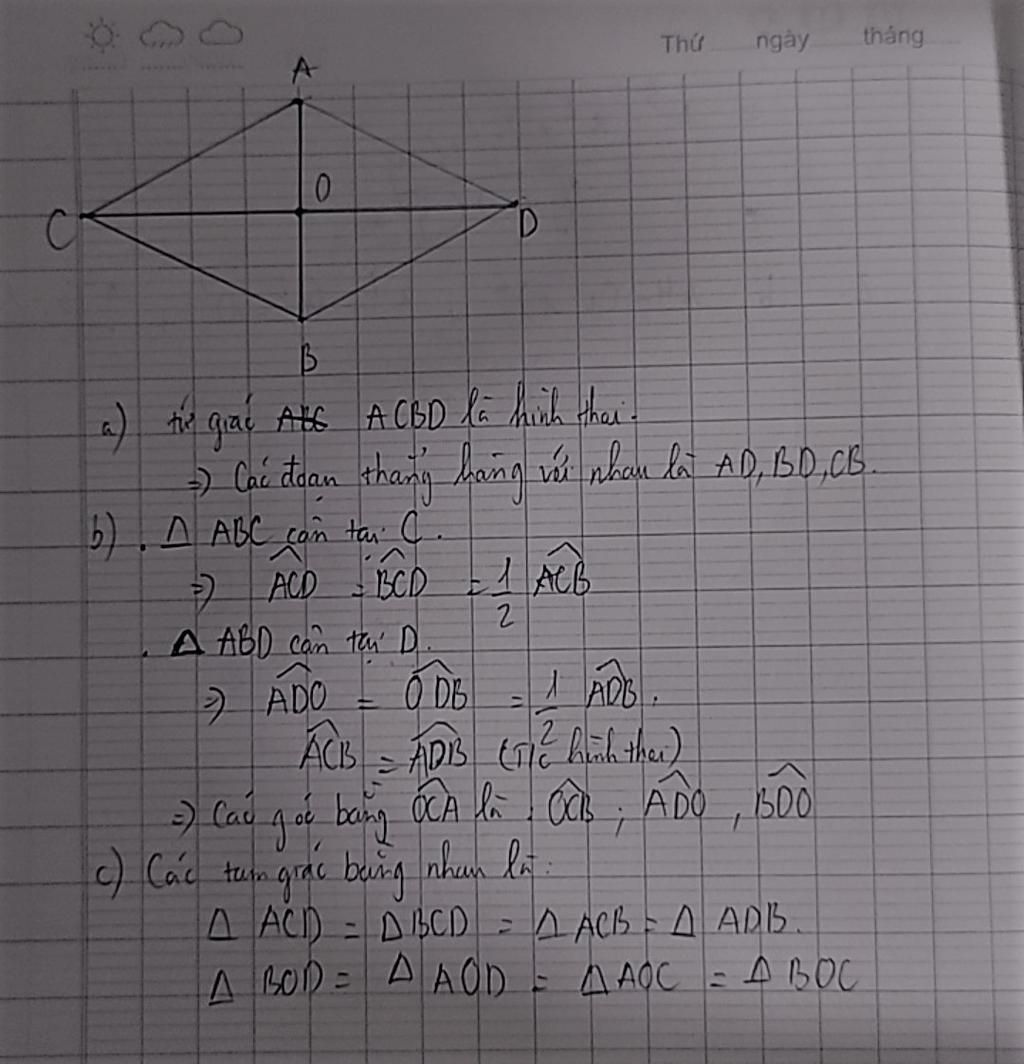 Thứ ngày tháng
A
O
C
D
B
a) tứ giác ABC ACBD là hình thoi.
=> Các đoạn thẳng bằng với nhau là AD, BD, CB.
b) . Δ ABC cân tại C.
=> \widehat{ACD} = \widehat{BCD} = \frac{1}{2} \widehat{ACB}
. Δ ABD cân tại D.
=> \widehat{ADO} = \widehat{ODB} = \frac{1}{2} \widehat{ADB}.
\widehat{ACB} = \widehat{ADB} (T/c hình thoi)
=> Các góc bằng \widehat{OCA} là : \widehat{OCB} ; \widehat{ADO} , \widehat{BDO}
c) Các tam giác bằng nhau là:
Δ ACD = Δ BCD = Δ ACB = Δ ADB.
Δ BOD = Δ AOD = Δ AOC = Δ BOC